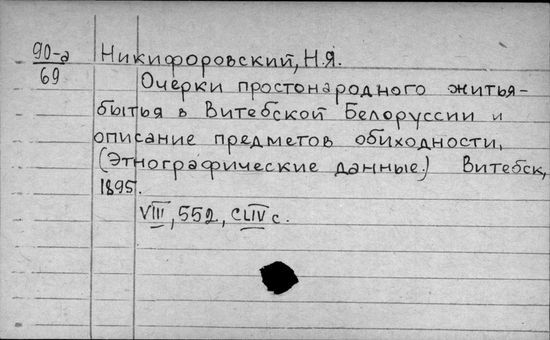 90-а
69
Никифоровский, Н.Я.
Очерки простонародного житья-
бытья в Витебской Белоруссии и
описание предметов обиходности,
(Этнографические данные.) Витебск,
1895.
VIII, 552., CLIV с.